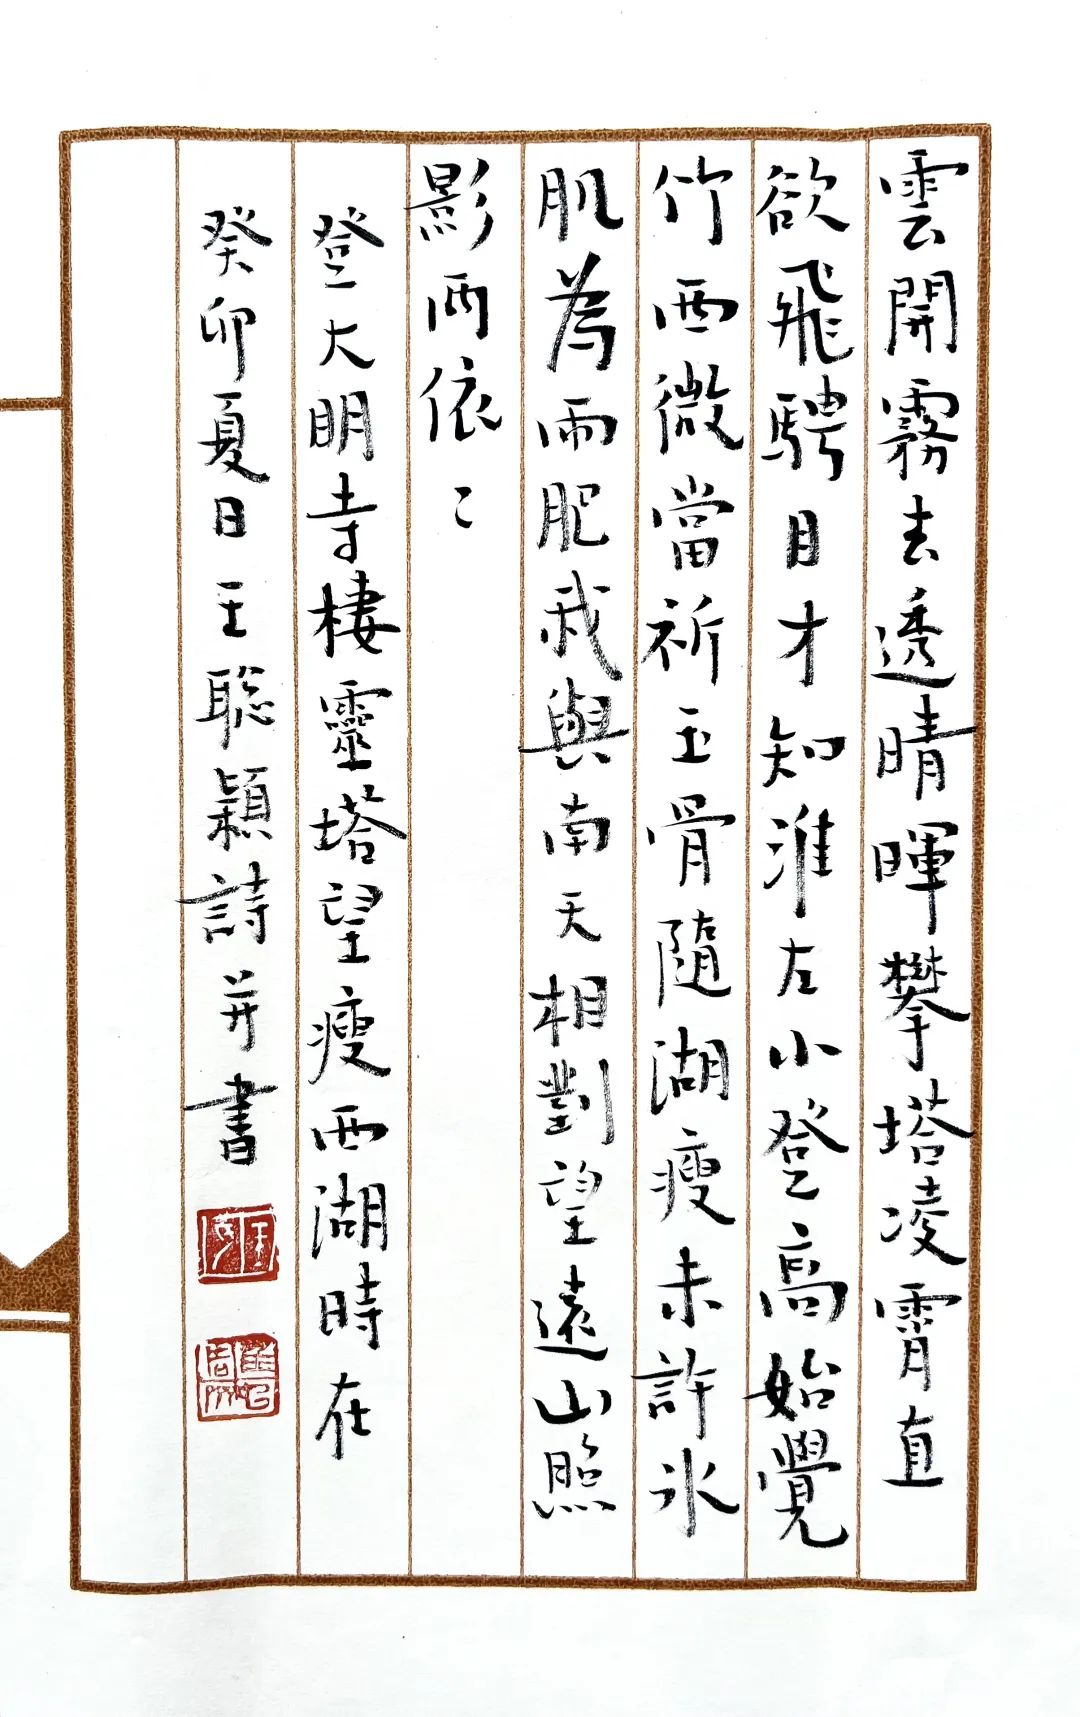 雲開霧去透晴暉攀塔凌霄直
欲飛騁目才知淮左小登高始覺
竹西微當祈玉骨隨湖瘦未許冰
肌為雨肥我與南天相對望遠山照
影兩依〻
登大明寺棲靈塔望瘦西湖時在
癸卯夏日王聰穎詩并書